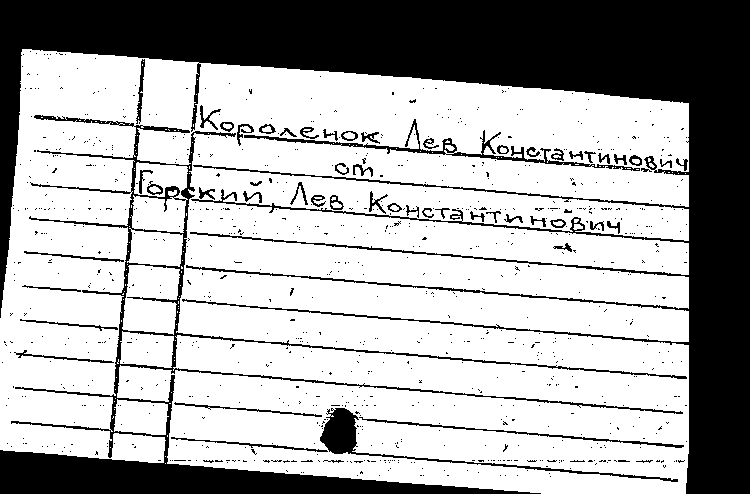 Короленок, Лев Константинович
от.
Горский, Лев Константинович